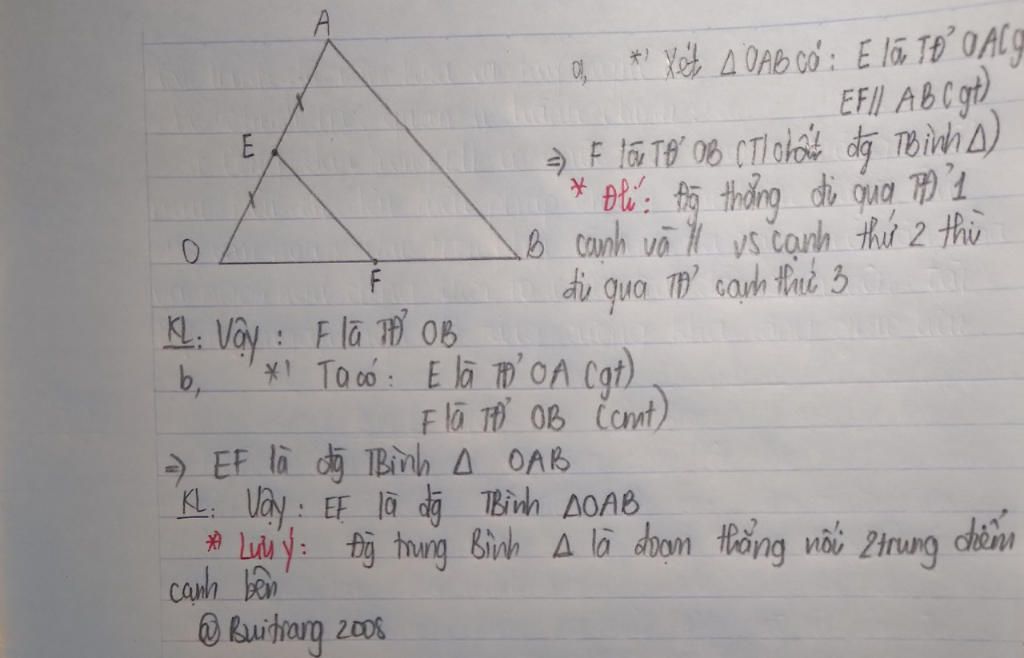 A
E
O
F
B
a, *' Xét Δ OAB có: E là TĐ' OA (g
EF // AB (gt)
=> F là TĐ' OB (T/chất đg TBình Δ)
* Đlí: Đg thẳng đi qua TĐ' 1
cạnh và // vs cạnh thứ 2 thì
đi qua TĐ' cạnh thứ 3
KL: Vậy: F là TĐ' OB
b, *' Ta có: E là TĐ' OA (gt)
F là TĐ' OB (cmt)
=> EF là đg TBình Δ OAB
KL: Vậy: EF là đg TBình ΔOAB
* Lưu ý: Đg trung Bình Δ là đoạn thẳng nối 2 trung điểm
cạnh bên
@ Buitrang 2008